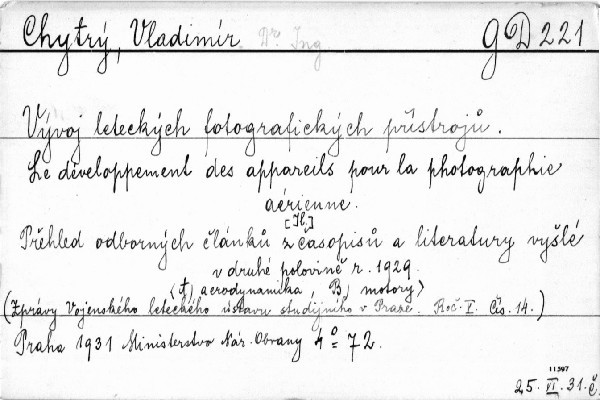 Chytrý, Vladimír. Dr. Ing GD 221
Vývoj leteckých fotografických přístrojů.
Le développement des appareils pour la photographie
aérienne.
[Il.]
Přehled odborných článků z časopisů a literatury vyšlé
v druhé polovině r. 1929.
(A) aerodynamika, B) motory)
(Zprávy Vojenského leteckého ústavu studijního v Praze. Roč. I. Čís. 14.)
Praha 1931 Ministerstvo Nár. Obrany 4° = 72.
11397
25. VI. 31. č.